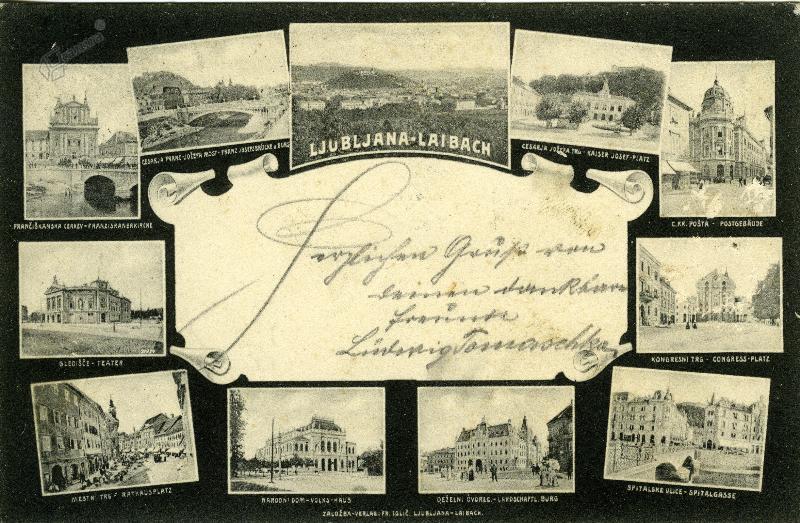 CESARJA FRANC-JOŽEFA MOST - FRANZ JOSEFS BRÜCKE
LJUBLJANA-LAIBACH
CESARJA JOŽEFA TRG - KAISER JOSEF-PLATZ
FRANČIŠKANSKA CERKEV - FRANZISKANERKIRCHE
C. KK. POŠTA - POSTGEBÄUDE
Herzlichen Gruß von
deinem dankbaren
Freunde
Ludwig Tomaschka
GLEDIŠČE - TEATER
KONGRESNI TRG - CONGRESS-PLATZ
MESTNI TRG - RATHAUSPLATZ
NARODNI DOM - VOLKS-HAUS
DEŽELNI DVOREC - LANDSCHAFTL. BURG
SPITALSKE ULICE - SPITALGASSE
ZALOŽBA - VERLAG: FR. IGLIČ, LJUBLJANA - LAIBACH.